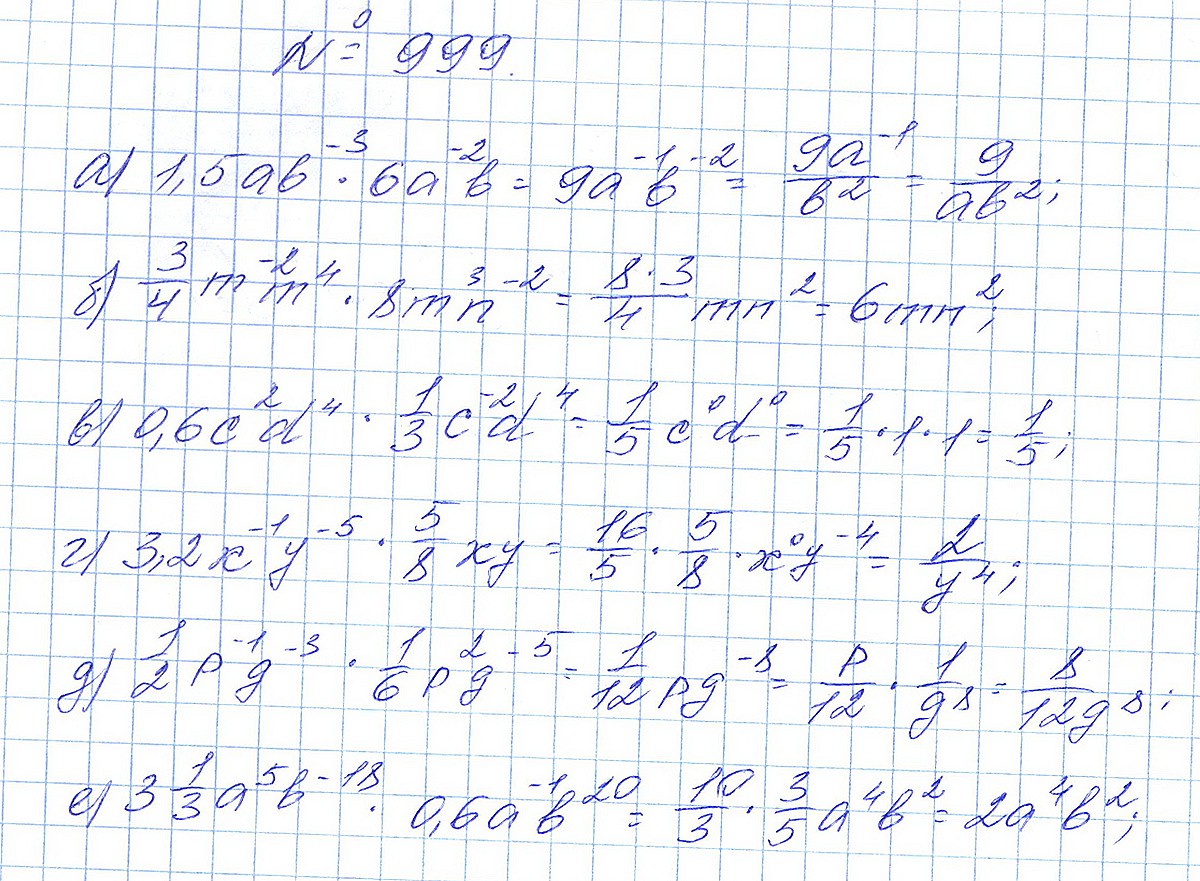 № 999.
а) 1,5ab⁻³ · 6a⁻²b = 9a⁻¹b⁻² = 9a⁻¹/b² = 9/ab²;
б) 3/4 m⁻²m⁴ · 8m³n⁻² = 8·3/4 mn² = 6mn²;
в) 0,6c²d⁴ · 1/3 c⁻²d⁴ = 1/5 c⁰d⁰ = 1/5 · 1 · 1 = 1/5;
г) 3,2x⁻¹y⁻⁵ · 5/8 xy = 16/5 · 5/8 · x⁰y⁻⁴ = 2/y⁴;
д) 1/2 p⁻¹g⁻³ · 1/6 p²g⁻⁵ = 1/12 pg⁻⁸ = p/12 · 1/g⁸ = 8/12g⁸;
е) 3 1/3 a⁵b⁻¹⁸ · 0,6a⁻¹b²⁰ = 10/3 · 3/5 a⁴b² = 2a⁴b²;